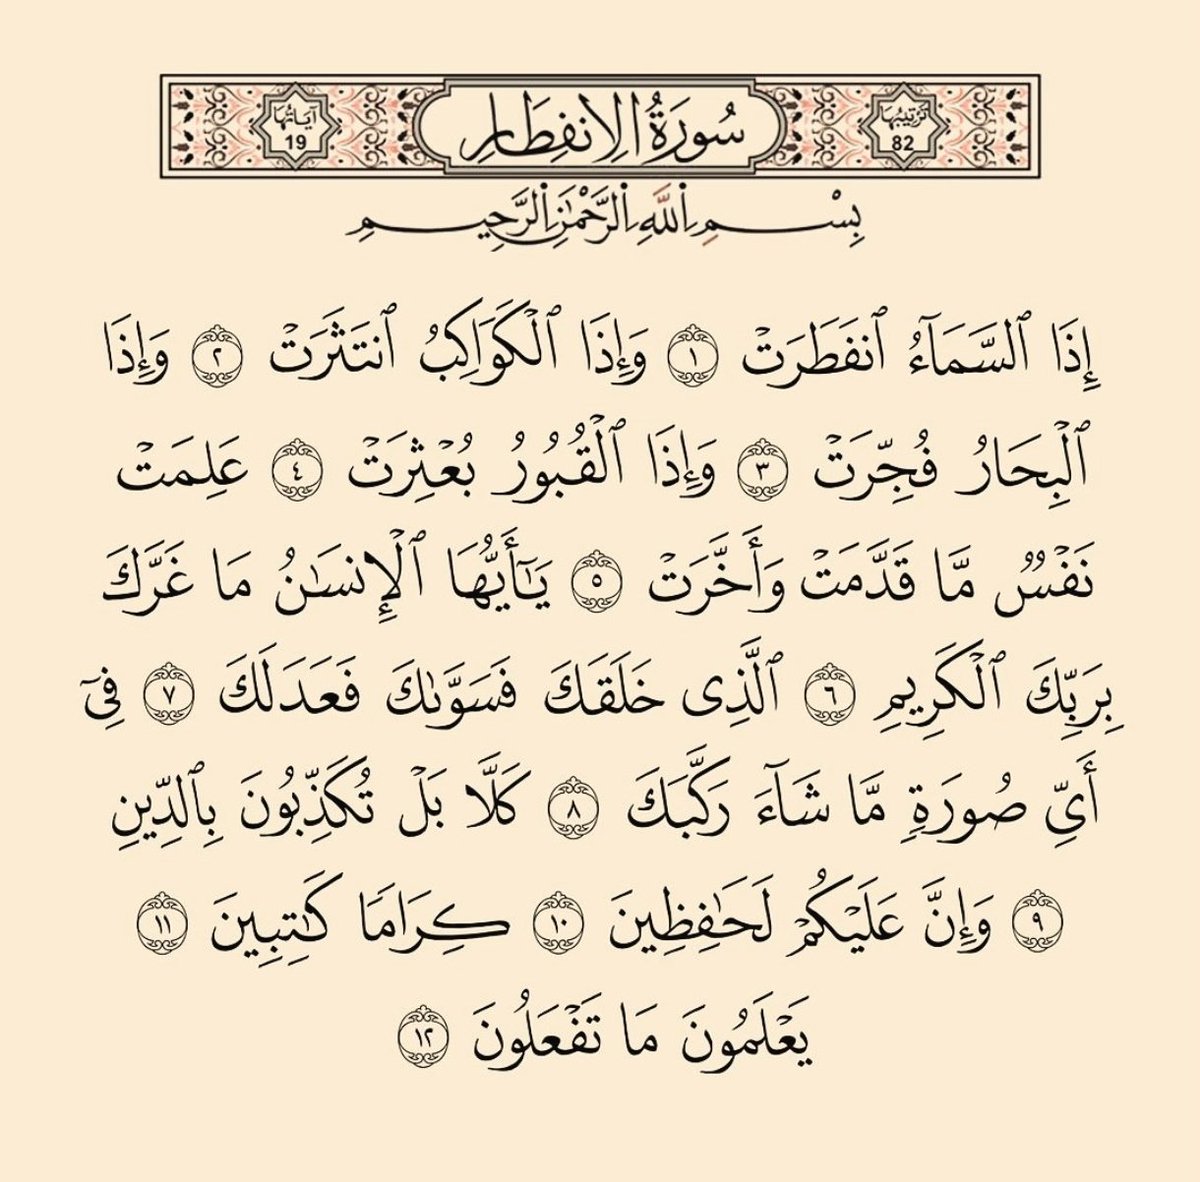 ترتيبها 82 سُورَةُ الِانفِطَار آياتها 19
بِسْمِ ٱللَّهِ ٱلرَّحْمَٰنِ ٱلرَّحِيمِ
إِذَا ٱلسَّمَآءُ ٱنفَطَرَتْ ١ وَإِذَا ٱلْكَوَاكِبُ ٱنتَثَرَتْ ٢ وَإِذَا
ٱلْبِحَارُ فُجِّرَتْ ٣ وَإِذَا ٱلْقُبُورُ بُعْثِرَتْ ٤ عَلِمَتْ
نَفْسٌ مَّا قَدَّمَتْ وَأَخَّرَتْ ٥ يَـٰٓأَيُّهَا ٱلْإِنسَـٰنُ مَا غَرَّكَ
بِرَبِّكَ ٱلْكَرِيمِ ٦ ٱلَّذِى خَلَقَكَ فَسَوَّىٰكَ فَعَدَلَكَ ٧ فِىٓ
أَىِّ صُورَةٍ مَّا شَآءَ رَكَّبَكَ ٨ كَلَّا بَلْ تُكَذِّبُونَ بِٱلدِّينِ
٩ وَإِنَّ عَلَيْكُمْ لَحَـٰفِظِينَ ١٠ كِرَامًا كَـٰتِبِينَ ١١
يَعْلَمُونَ مَا تَفْعَلُونَ ١٢